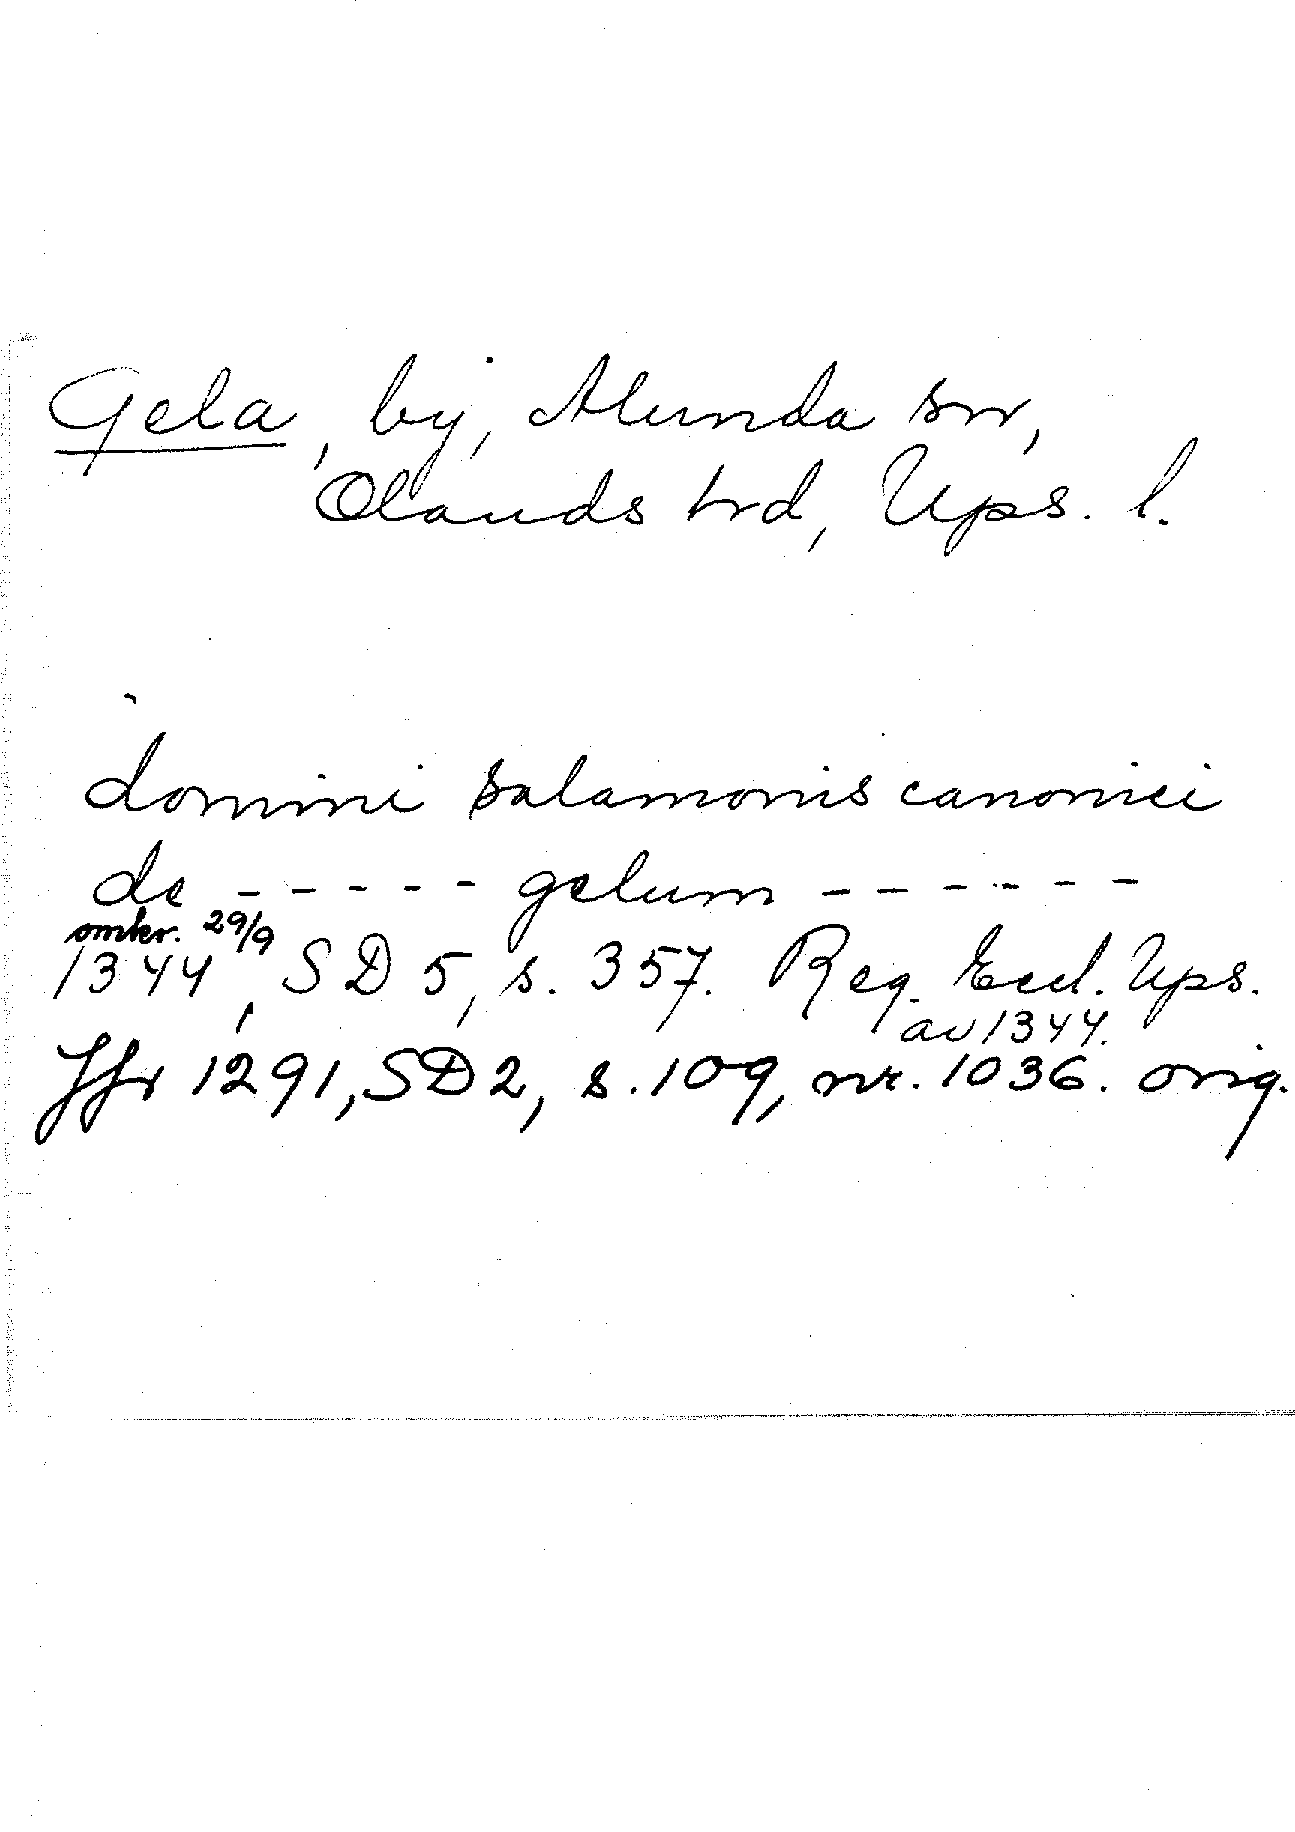 Gela, by, Alunda sn,
Olands hd, Ups. l.
domini salamonis canonici
de ----- gelum ------
omkr. 29/9
1344, SD 5, s. 357. Reg. Eccl. Ups.
av 1344.
Jfr 1291, SD 2, s. 109, nr. 1036. orig.